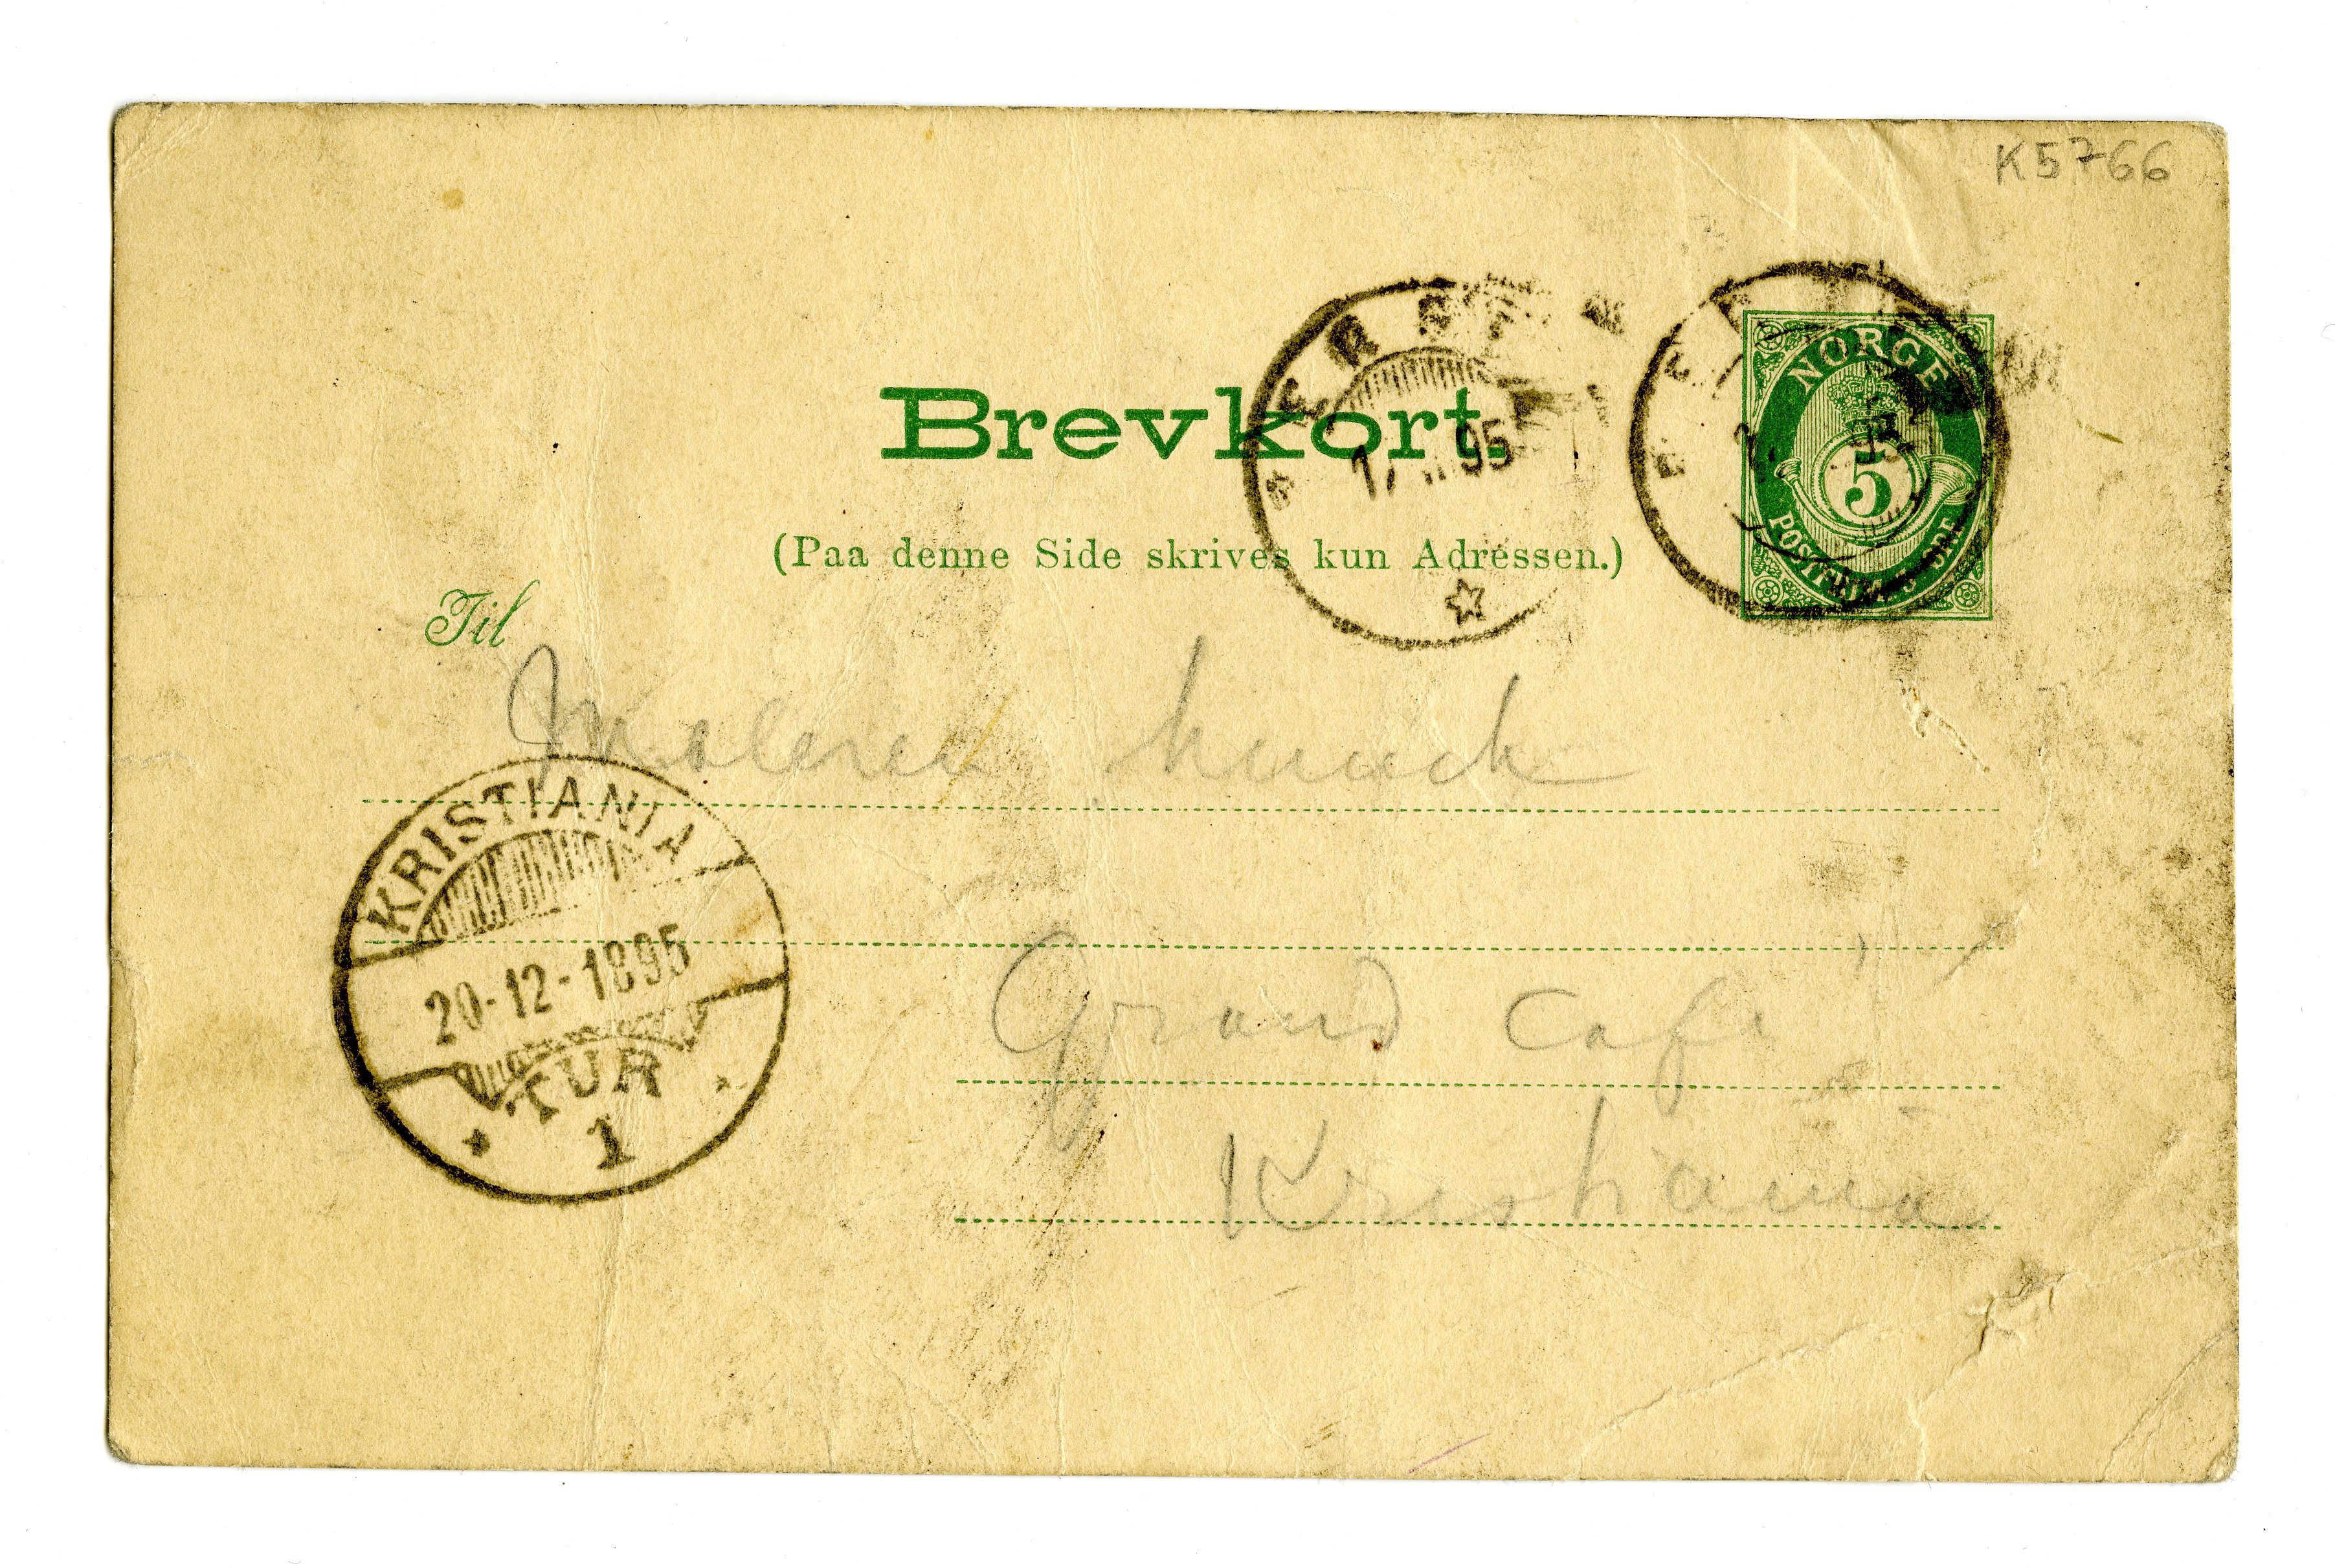 K5766
Brevkort.
(Paa denne Side skrives kun Adressen.)
NORGE
5
POSTFRIM. 5 ØRE
95
Til
Maleren Munch
KRISTIANIA
20-12-1895
TUR
1
Grand Café
Kristiania